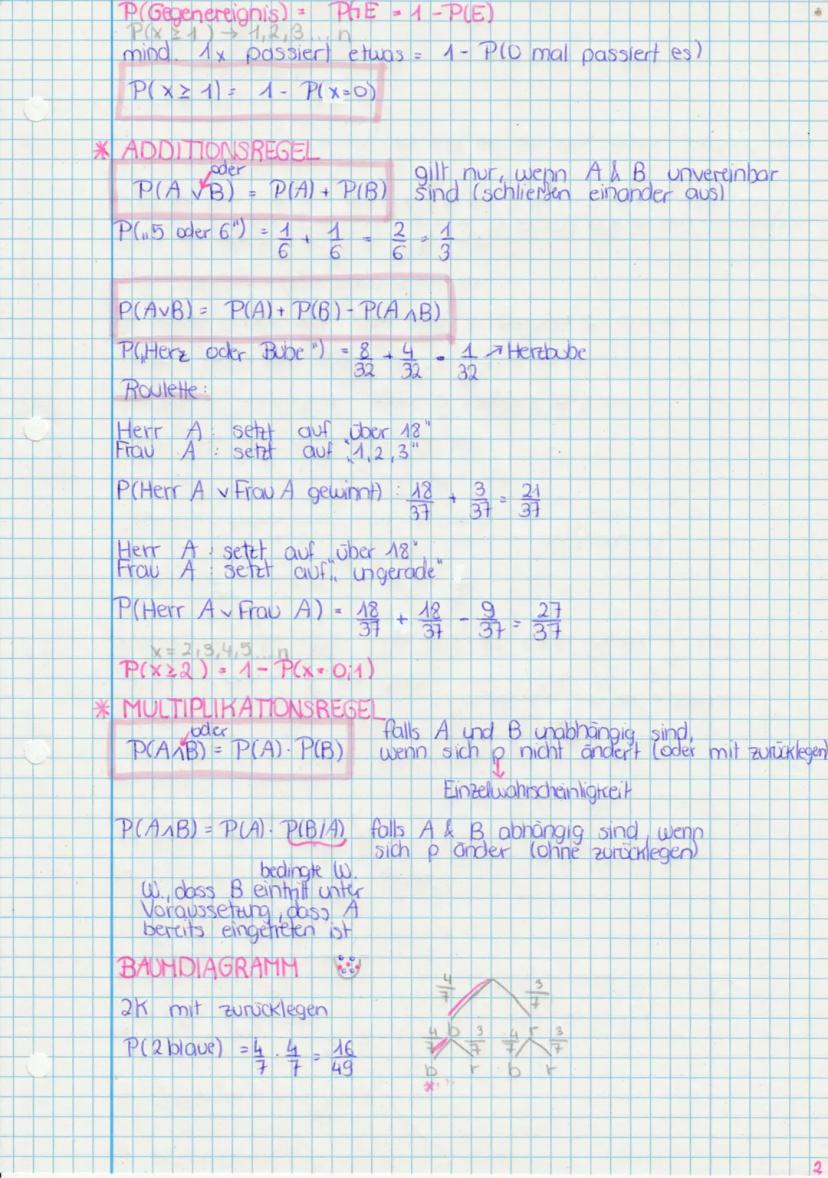 P(Gegenereignis) = P¬E = 1 - P(E)
P(x ≥ 1) → 1,2,3 ... n
mind. 1x passiert etwas = 1 - P(0 mal passiert es)
P(x ≥ 1) = 1 - P(x=0)
* ADDITIONSREGEL
oder
P(A ∨ B) = P(A) + P(B) gilt nur, wenn A & B unvereinbar
sind (schließen einander aus)
P(„5 oder 6“) = 1/6 + 1/6 = 2/6 = 1/3
P(A∨B) = P(A) + P(B) - P(A ∧ B)
P(„Herz oder Bube“) = 8/32 + 4/32 - 1/32 → Herzbube
Roulette:
Herr A : setzt auf „über 18“
Frau A : setzt auf „1,2,3“
P(Herr A ∨ Frau A gewinnt) : 18/37 + 3/37 = 21/37
Herr A : setzt auf „über 18“
Frau A : setzt auf „ungerade“
P(Herr A ∨ Frau A) = 18/37 + 18/37 - 9/37 = 27/37
x = 2,3,4,5 ... n
P(x ≥ 2) = 1 - P(x = 0;1)
* MULTIPLIKATIONSREGEL
oder
P(A∧B) = P(A) · P(B) falls A und B unabhängig sind,
wenn sich p nicht ändert (oder mit zurücklegen)
Einzelwahrscheinligkeit
P(A∧B) = P(A) · P(B/A) falls A & B abhängig sind, wenn
sich p änder (ohne zurücklegen)
bedingte W.
W., dass B eintritt unter
Voraussetzung, dass A
bereits eingetreten ist
BAUMDIAGRAMM
4/7 3/7
2K mit zurücklegen
b r
4/7 3/7 4/7 3/7
P(2 blaue) = 4/7 · 4/7 = 16/49
b r b r
*
2